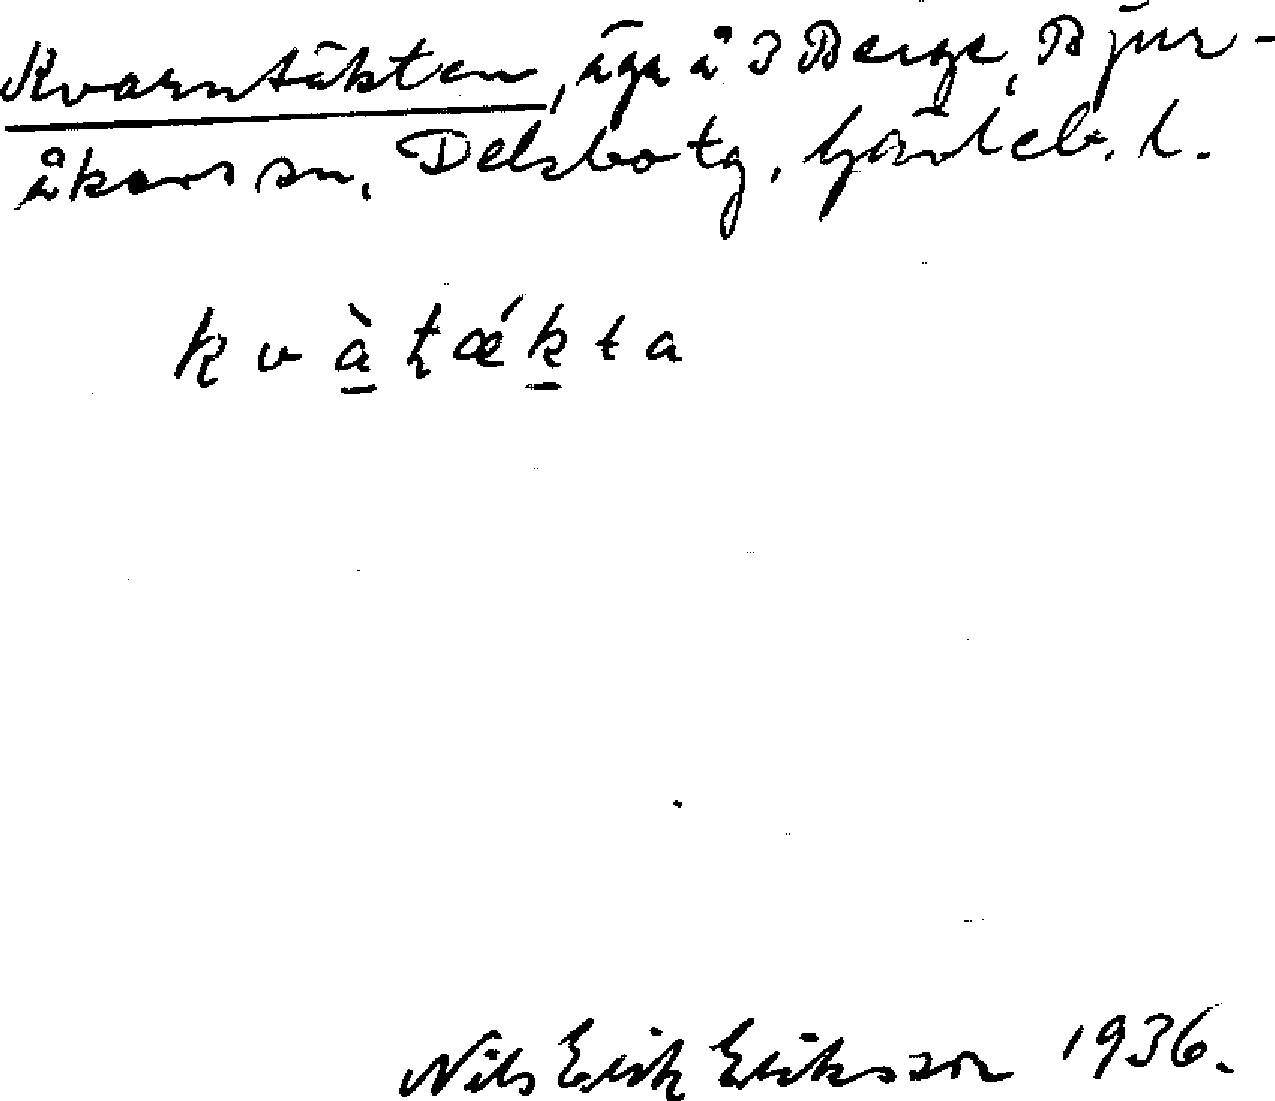 Kvarntäkten, äga å 3 Berge, Bjur-
åkers sn, Delsbo tg, Gävleb. l.
kvàt̠ǽkta
Nils Erik Eriksson 1936.